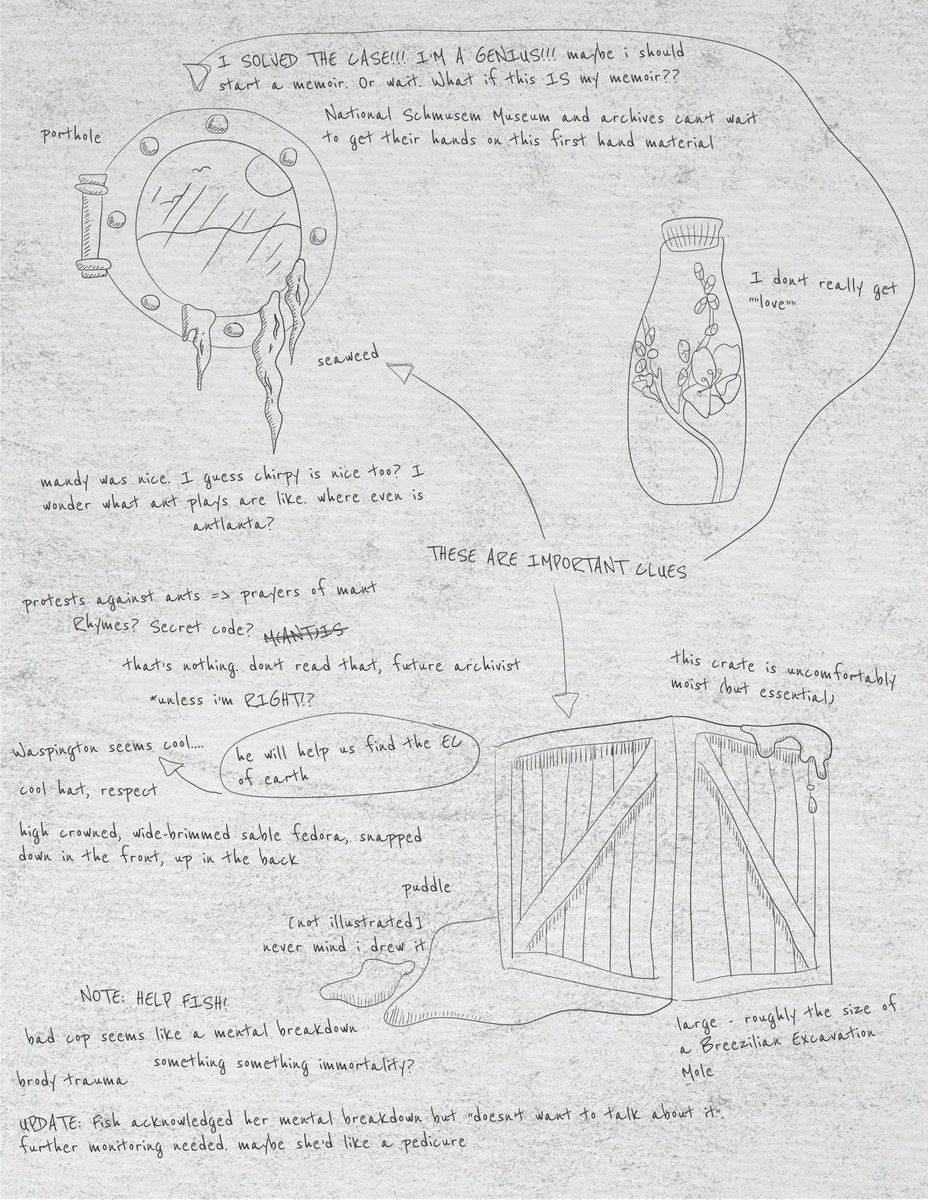 I SOLVED THE CASE!!! I'M A GENIUS!!! maybe i should
start a memoir. Or wait. What if this IS my memoir??
National Schmusem Museum and archives can't wait
to get their hands on this first hand material
porthole
I don't really get
""love""
seaweed
mandy was nice. I guess chirpy is nice too? I
wonder what ant plays are like. where even is
antlanta?
THESE ARE IMPORTANT CLUES
protests against ants => prayers of mant
Rhymes? Secret code? M(ANT)IS
that's nothing. don't read that, future archivist
*unless i'm RIGHT!?
this crate is uncomfortably
moist (but essential)
Waspington seems cool....
he will help us find the EC
of earth
cool hat, respect
high crowned, wide-brimmed sable fedora, snapped
down in the front, up in the back
puddle
[not illustrated]
never mind i drew it
NOTE: HELP FISH!
bad cop seems like a mental breakdown
something something immortality?
brody trauma
large - roughly the size of
a Breezilian Excavation
Mole
UPDATE: Fish acknowledged her mental breakdown but "doesn't want to talk about it".
further monitoring needed. maybe she'd like a pedicure